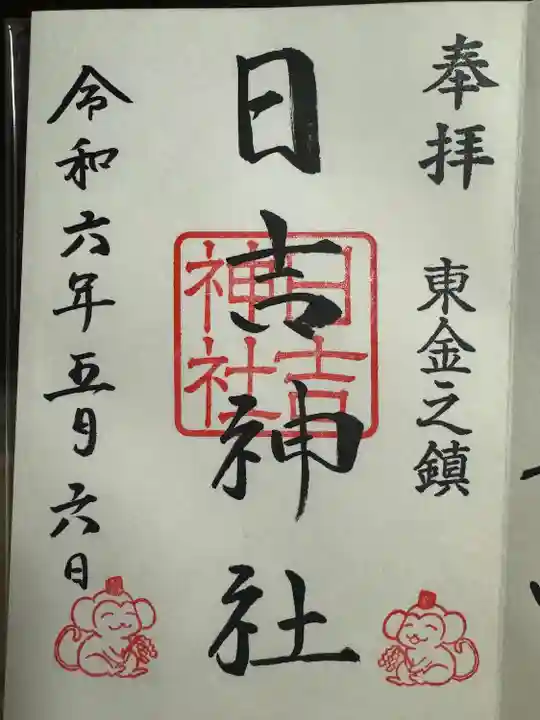 奉拝
東金之鎮
日吉神社
日吉
神社
令和六年五月六日